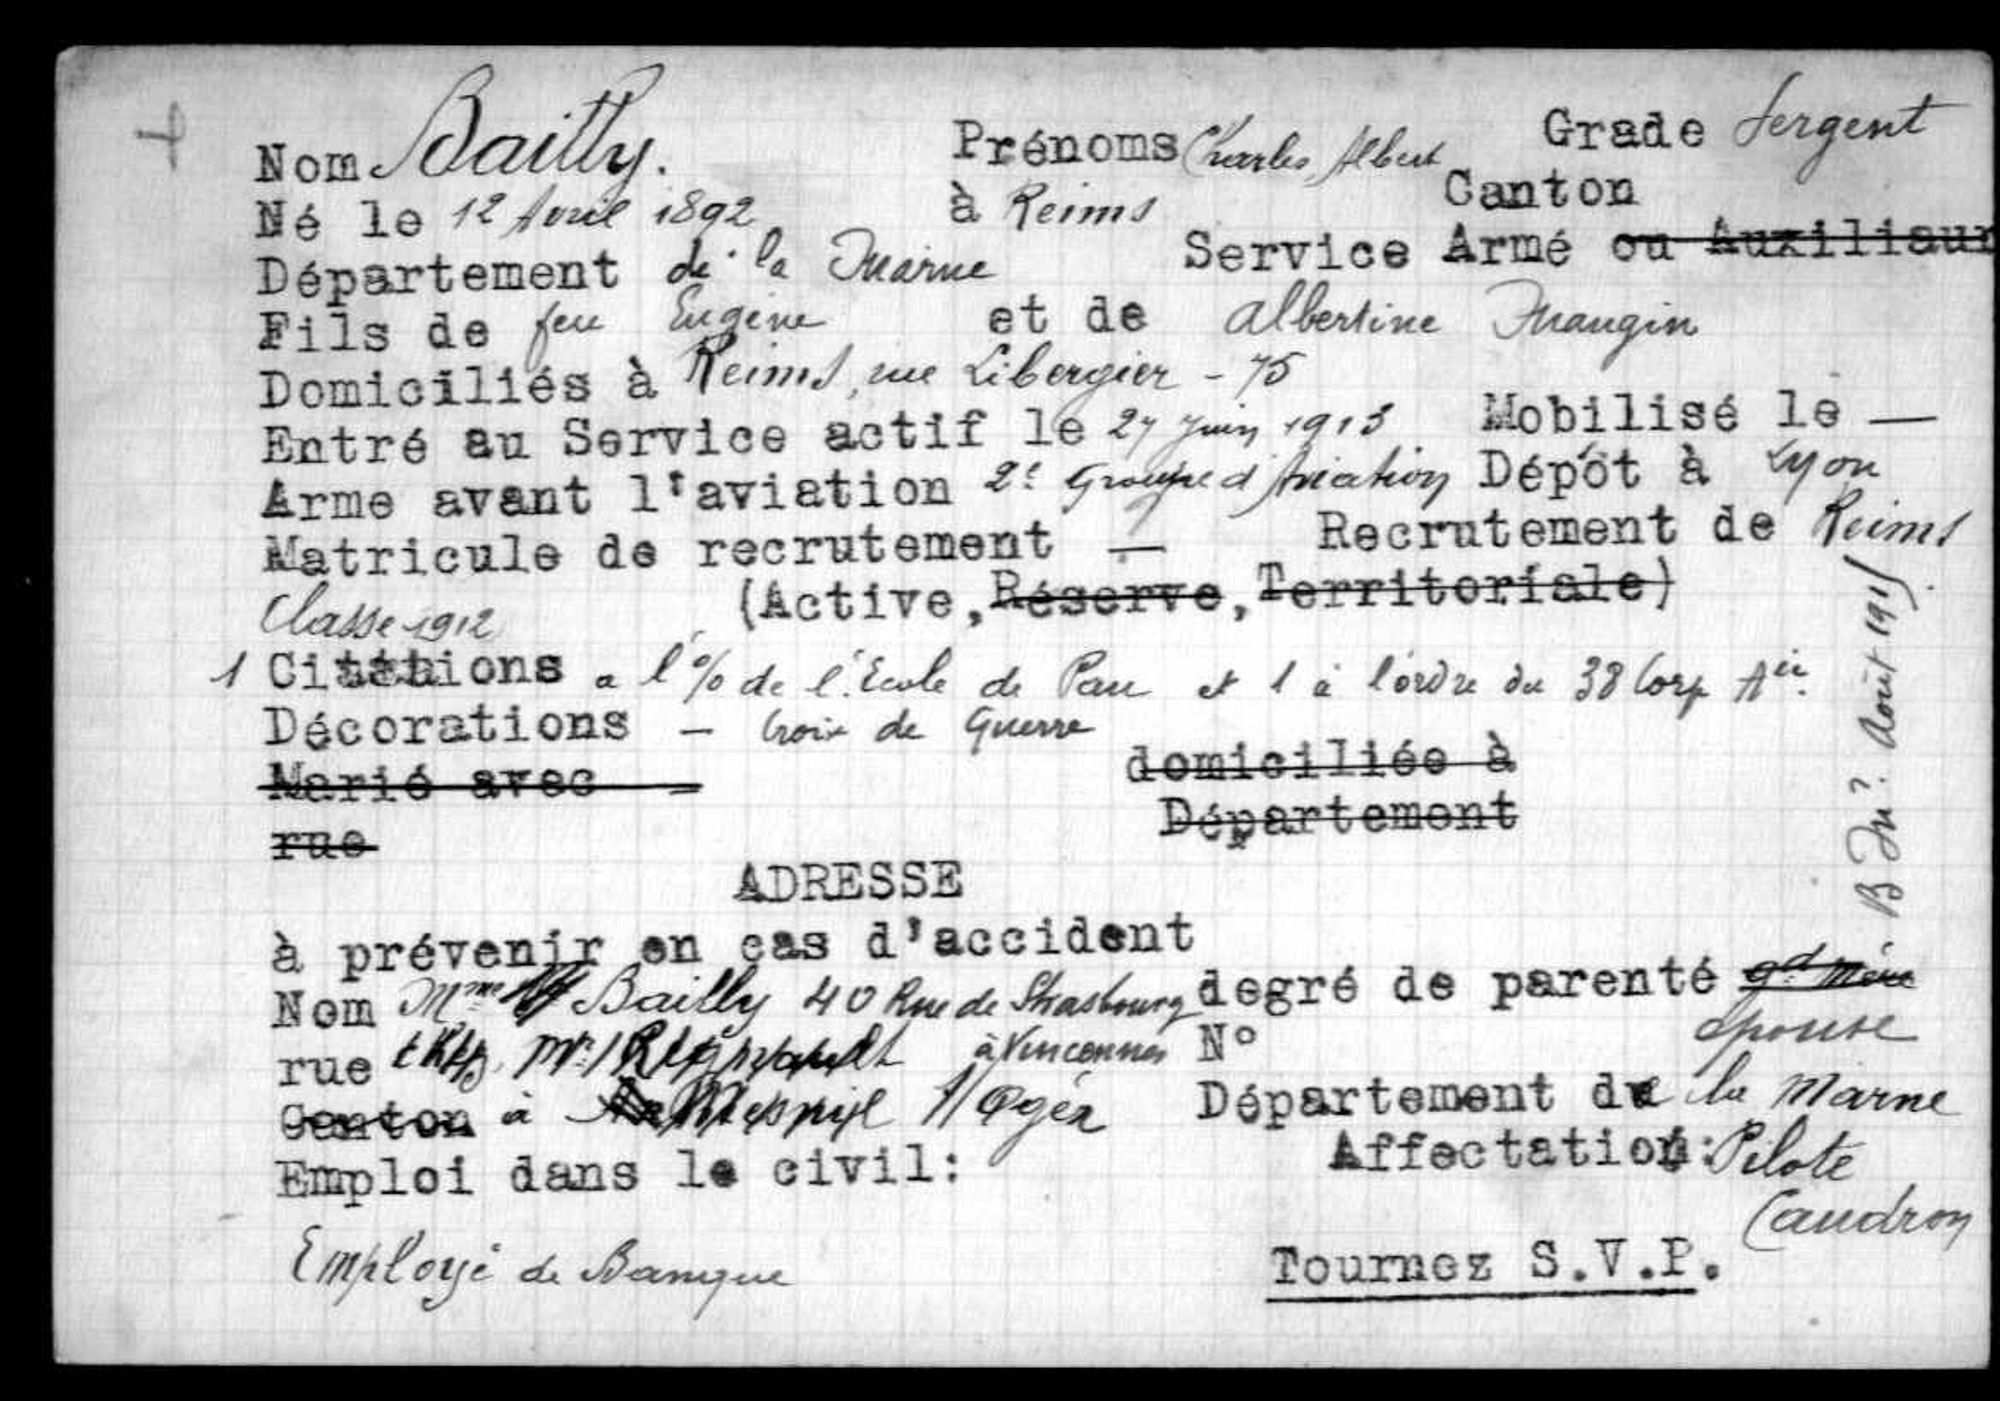 Nom Bailly. Prénoms Charles, Albert Grade Sergent
Né le 12 Avril 1892 à Reims Canton
Département de la Marne Service Armé ou Auxiliaur
Fils de feu Eugène et de Albertine Maugin
Domiciliés à Reims, rue Libergier - 75
Entré au Service actif le 27 Juin 1913 Mobilisé le —
Arme avant l'aviation 2e Groupe d'Aviation Dépôt à Lyon
Matricule de recrutement — Recrutement de Reims
Classe 1912 (Active, Réserve, Territoriale)
1 Citations a l'% de l'Ecole de Pau et 1 à l'ordre du 38 Corp Aie.
Décorations - Croix de Guerre
Marié avec domiciliée à
rue Département
ADRESSE
à prévenir en cas d'accident
Nom Mme Bailly 40 Rue de Strasbourg degré de parenté gd Mère
épouse
rue à Vincennes N°
Canton à Mesnil s/ Oger Département de la Marne
Emploi dans le civil: Affectation: Pilote
Caudron
Employé de Banque
Tournez S.V.P.
Août 1915